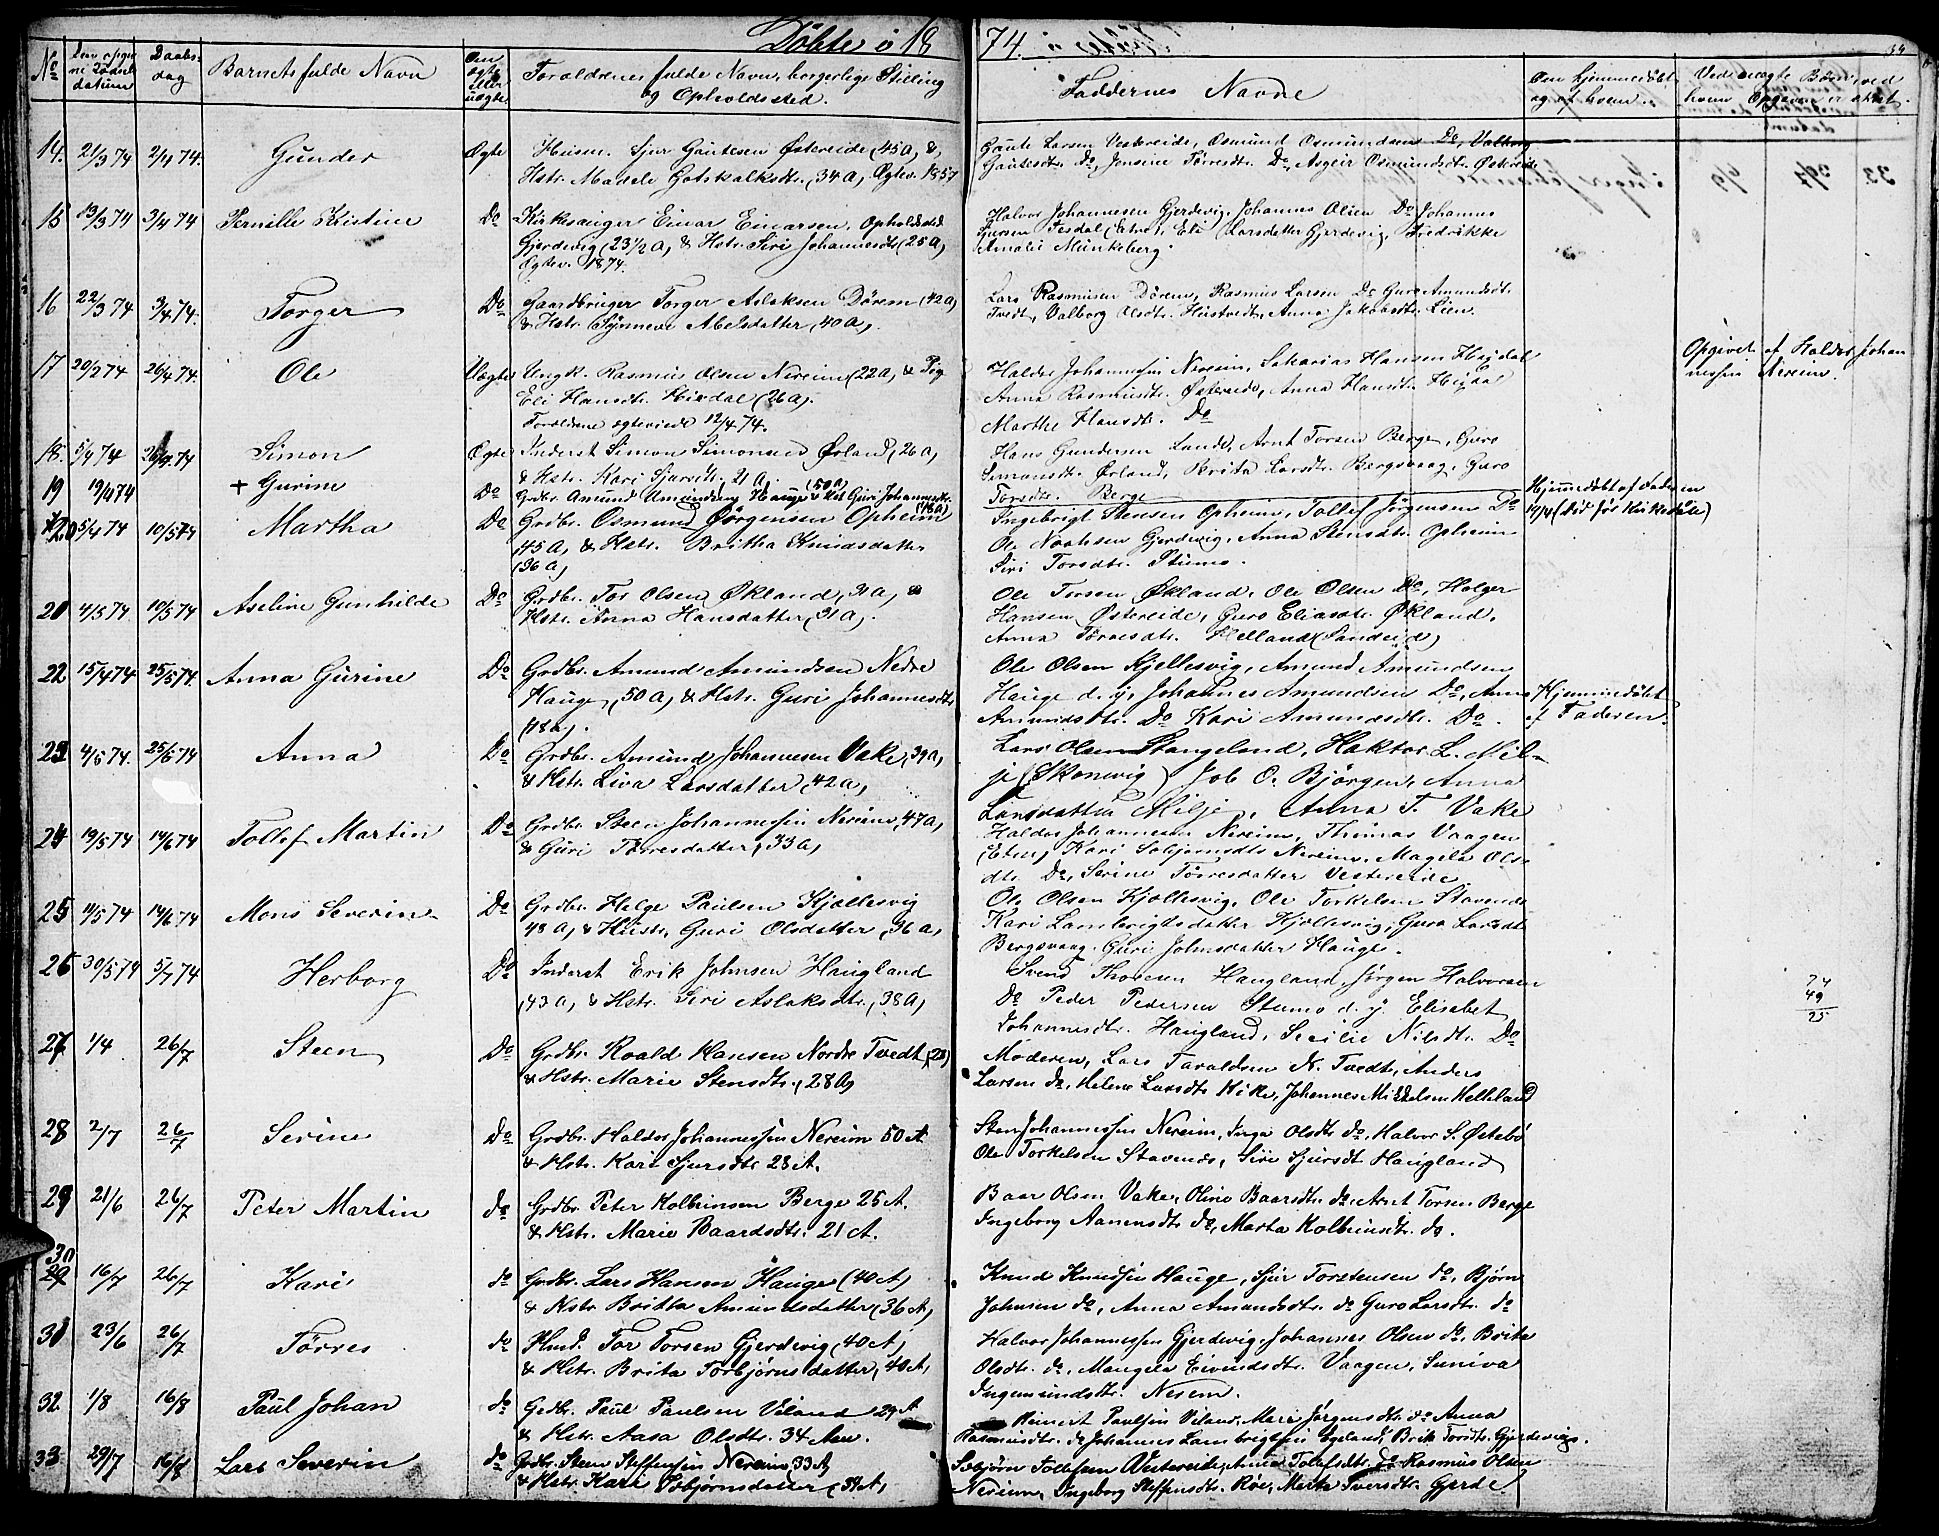 Döbte i 1874.
No
Den opgivne Födselsdatum
Daabsdag
Barnets fulde Navn
Om ægte eller uægte
Forældrenes fulde Navn, borgerlige Stilling
og Opholdssted.
Faddernes Navne
Om hjemmedöbt
og af hvem.
Ved uægte Börn, ved
hvem Opgaven er sket.
14. 21/3 74 2/4 74. Gunder Ægte Husm. Sjur Gautesen Østereide (45 A) &
Hstr. Madele Gotskalksdtr. (34 A) Ægtev. 1857
Gaute Larsen Vestereide, Osmund Osmundsen Do, Valborg
Gautesdtr. Do, Jensine Tørresdtr. Do, Asgeir Osmundsdtr. Østereide
15 13/3 74 3/4 74 Pernille Kristine Do Kirkesanger Einar Einarsen, Opholdssted
Gjerdevig (23 1/2 A) & Hstr. Siri Johannesdtr. (25 A)
Ægtev. 1874.
Halvor Johannesen Gjerdevig, Johannes Olsen Do Johannes
Tesdal (Etne), Eli Larsdatter Gjerdevig, Fredrikke
Amalie Münkeberg.
16 22/3 74 3/4 74. Torger Do Gaardbruger Torger Aslaksen Dörem (42 A)
& Hstr. Synneve Abelsdatter (40 A).
Lars Rasmussen Dörem, Rasmus Larsen Do Guro Amundsdt.
Tvedt, Valborg Olsdtr. Hustvedt, Anna Jakobsdtr. Lien.
17 20/3 74 26/4 74. Ole Uægte Ungk. Rasmus Olsen Nereim (22 A) & Pig
Eli Hansdtr. (26 A).
Forældrene egteviede 12/4 74.
Haldor Johannessen Nereim, Sakarias Hansen
Anna Rasmusdtr. Østereide, Anna Hansdtr.
Marthe Hansdtr. Do
Opgivet af Haldor Johan
nessen Nereim.
18. 5/4 74 26/4 74 Simon Ægte Inderst Simon Simonsen Ørland (26 A)
& Hstr. Kari Sjursdtr. 21 A.
Hans Gundersen Lunde, Arnt Torsen Berge, Guro
Simonsdtr. Ørland, Brita Larsdtr. Bergsvaag, Guro
Torsdtr. Berge
19 19/4 74 + Gurine Do Grdbr. Amund Amundsen Hauge (50 A) & Hst. Guri Johannesdtr. (18 A)
Hjemmedöbt af Faderen
19/4 (död för Kirkedaab)
20 5/4 74 10/5 74 Martha Do Grdbr. Osmund Jørgensen Opheim
45 A, & Hstr. Britha Knudsdatter
(36 A)
Ingebrigt Stensen Opheim, Tollef Jørgensen Do
Ole Noahsen Gjerdevig, Anna Stensdtr. Opheim
Siri Torsdtr. Stumo.
21 4/5 74 10/5 74 Aseline Gunhilde Do Grdbr. Tor Olsen Økland, 31 A, &
Hstr. Anna Hansdatter (31 A).
Ole Torsen Økland, Ole Olsen Do, Holger
Hansen Østereide, Guro Eliasdtr. Økland,
Anna Tørresdtr. Helland (Sandeid)
22 15/4 74 25/5 74. Anna Gurine Do Grdbr. Amund Amundsen Nedre
Hauge, (50 A) & Hstr. Guri Johannesdtr.
(18 A).
Ole Olsen Kjellesvig, Amund Amundsen
Hauge d. y, Johannes Amundsen Do, Anna
Amundsdtr. Do Kari Amundsdtr. Do.
Hjemmedöbt
af Faderen.
23 4/5 74. 25/5 74 Anna Do Grdbr. Amund Johannesen Vake, (39 A)
& Hstr. Liva Larsdatter (42 A)
Lars Olsen Stangeland, Haktor L. Mil-
je (Skonevig) Job O. Björgen, Anna
Larsdatter Milje, Anna T. Vake
24 19/5 74 14/6 74 Tollef Martin Do Grdbr. Steen Johannessen Nereim, (47 A)
& Guri Tørresdatter, 33 A,
Haldor Johannesen Nereim, Thomas Vaagen
(Etne) Kari Nereim, Magela Ols-
dtr. Do, Serine Tørresdatter Vestereide
25 11/5 74 14/6 74 Mons Severin Do Grdbr. Helge Paulsen Kjøllesvig
48 A, & Hustr. Guri Olsdatter, (36 A)
Ole Olsen Kjøllesvig, Ole Torkelsen Stavenes
Kari Lambrigtsdatter Kjøllesvig, Guro Larsdtr
Bergsvaag, Guri Johnsdatter Hauge.
26 30/5 74 5/7 74 Herborg Do Inderst Erik Johnsen Haugland
(43 A) & Hstr. Siri Aslaksdtr. (38 A)
Svend Thorsen Haugland, Jørgen Halvorsen
Do Peder Pedersen Stumo d. y Elisabet
Johannesdtr. Haugland, Secilie Nilsdtr. Do
74
49
25
27 1/4 26/7 Steen Do Grdbr. Roald Hansen Nordre Tvedt (28)
& Hstr. Marie Stensdtr. (28 A)
Moderen, Lars Taraldsen N. Tvedt, Anders
Larsen do, Helene Larsdtr. Vike, Johannes Mikkelsen Helleland
28 2/7 26/7 Serine Do Grdbr. Haldor Johannessen Nereim 50 A
& Hstr. Kari Sjursdtr. 28 A.
Sten Johannessen Nereim, Inga Olsdtr. do, Halvor S. Østebö
Ole Torkelsen Stavenes, Siri Sjursdt. Haugland
29 21/6 26/7 Peter Martin do Grdbr. Peter Kolbeinsen Berge 25 A.
& Hstr. Marie Baardsdtr. 21 A.
Baar Olsen Vake, Oline Baarsdtr. do, Arnt Torsen Berge
Ingeborg Aanensdtr. do, Marta Kolbeinsdtr. do.
30
29 16/7 26/7 Kari do Grdbr. Lars Hansen Hauge (40 A)
& Hstr. Britta Amundsdatter (36 A)
Knud Knudsen Hauge, Sjur Torstensen do, Bjørn
Johnsen do, Anna Amundsdtr. do Guro Larsdtr. do
31 23/6 26/7 Tørres do Hmd. Tor Torsen Gjerdevig (40 A)
& Hstr. Brita Torbjørnsdatter, (40 A)
Halvor Johannessen Gjerdevig, Johannes Olsen do, Brita
Olsdt. do, Maugela Eivendsdtr. Vaagen, Suniva
Ingemundsdtr. Nesem.
32 1/8 16/8 Paul Johan do Grdbr. Paul Paulsen Viland 29 A
& Hstr. Aasa Olsdtr. 34 Aar.
Reinert Paulsen Viland, Mari Jørgensdtr. do Anna
Rasmusdtr. do Johannes Lambrigtsen Egeland, Brita Torsdtr. Gjerdevig.
33 29/7 16/8 Lars Severin do Grdbr. Steen Steffensen Nereim 33 A
& Hstr. Kari Sobjørnsdatter (31 A)
Sobjørn Tollefsen Vestereide, Anna Tollefsdtr. do Rasmus Olsen
Nereim, Ingeborg Steffensdtr. Röe, Marta Iversdtr. Gjerde